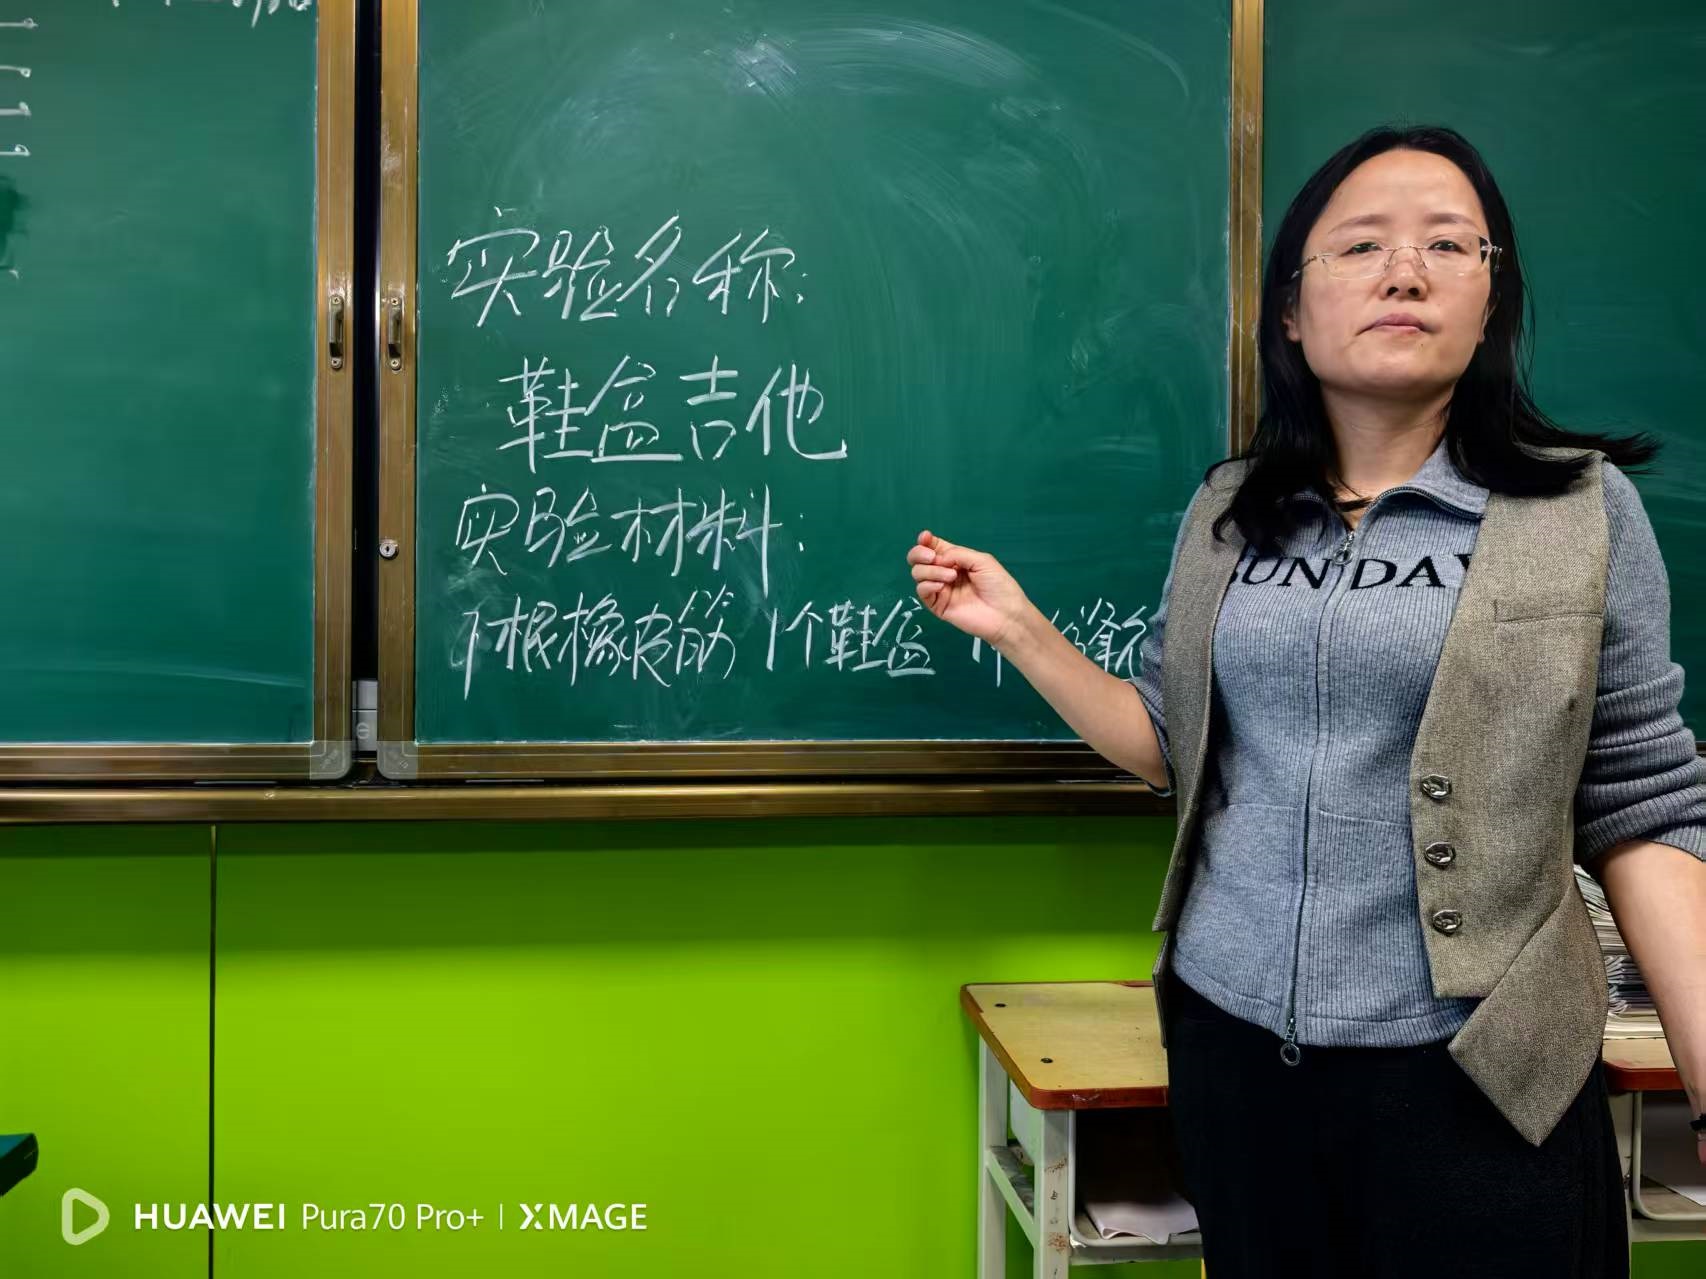 实验名称:
鞋盒吉他
实验材料:
下根橡皮筋 1个鞋盒
SUNDAY
HUAWEI Pura70 Pro+ | XMAGE